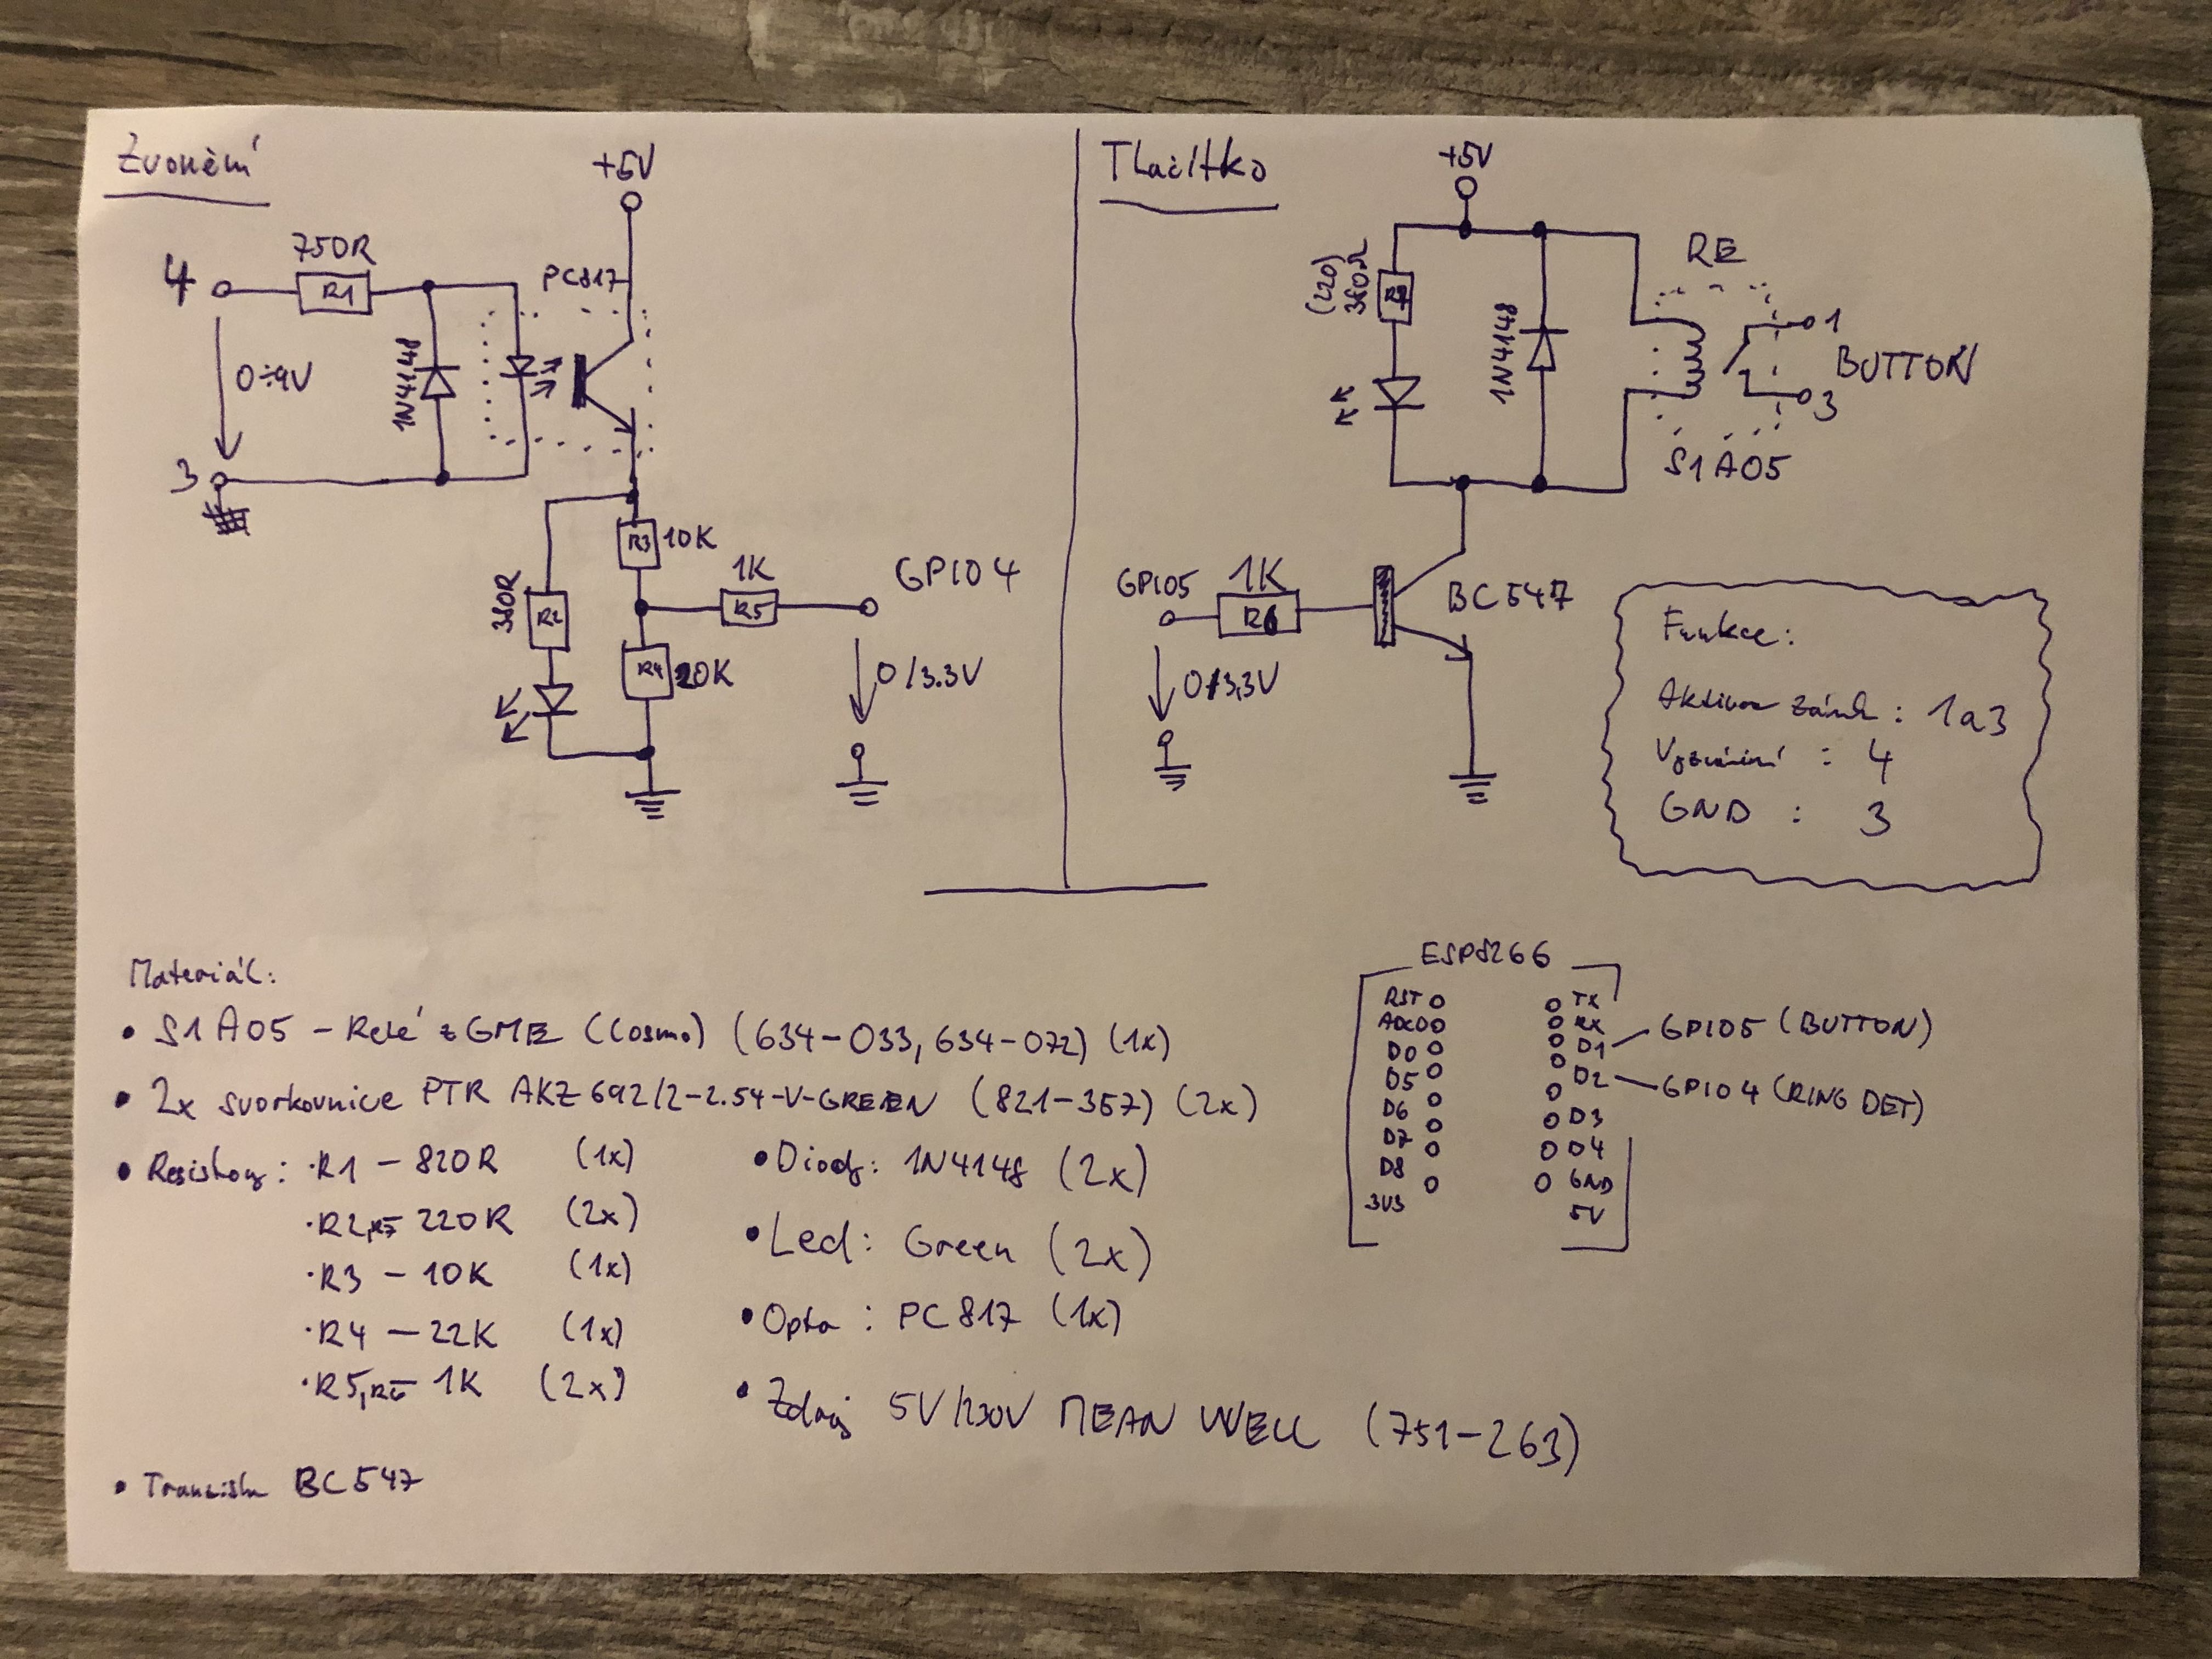 Zvonění
+5V
750R
4
R1
PC817
1N4148
0÷9V
3
R3
10K
1K
GPIO4
380R
R2
R5
R4
20K
0/3.3V
Tlačítko
+5V
RE
(220)
380Ω
1N4148
1
BUTTON
3
S1A05
GPIO5
1K
R6
BC547
0/3,3V
Funkce:
zámk : 1a3
Vyzvánění : 4
GND : 3
Materiál:
• S1A05 – Relé z GME (Cosmo) (634-033, 634-072) (1x)
• 2x svorkovnice PTR AKZ692/2-2.54-V-GREEN (821-357) (2x)
• Resistory: ·R1 – 820R (1x)
·R2,R7 – 220R (2x)
·R3 – 10K (1x)
·R4 – 22K (1x)
·R5,R6 – 1K (2x)
• Diody: 1N4148 (2x)
• Led: Green (2x)
• Opto : PC817 (1x)
• Zdroj 5V/230V MEAN WELL (751-263)
• BC547
ESP8266
RST
ADC0
D0
D5
D6
D7
D8
3V3
TX
RX
D1
D2
D3
D4
GND
5V
GPIO5 (BUTTON)
GPIO4 (RING DET)